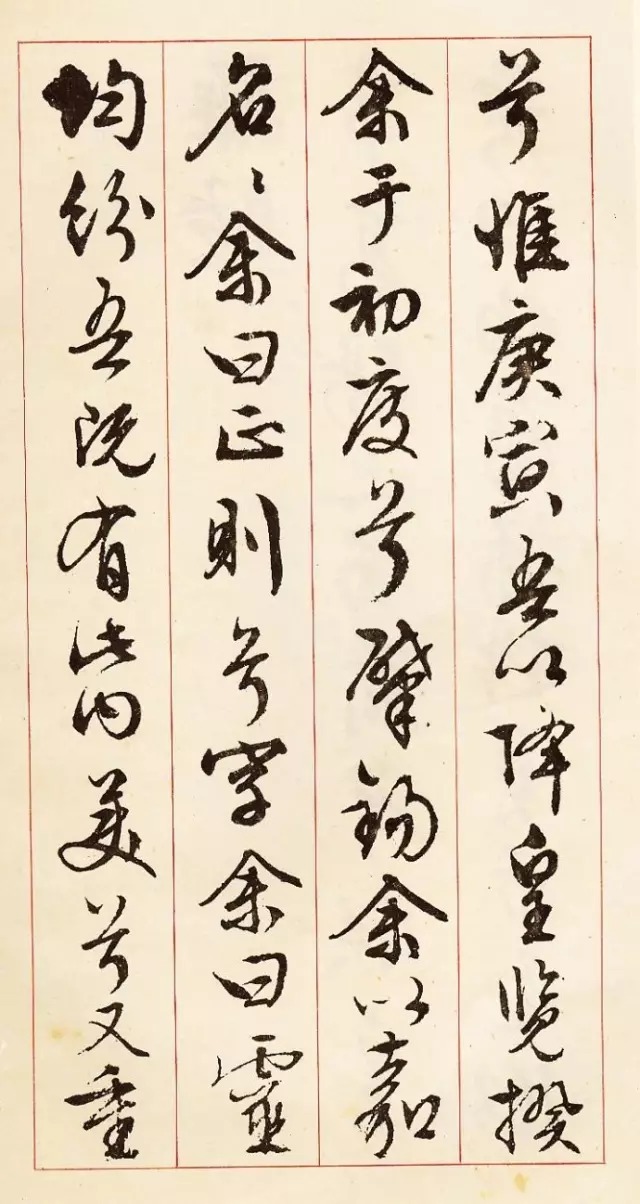 兮惟庚寅吾以降皇覽揆
余于初度兮肇錫余以嘉
名〻余曰正則兮字余曰靈
均紛吾既有此內美兮又重